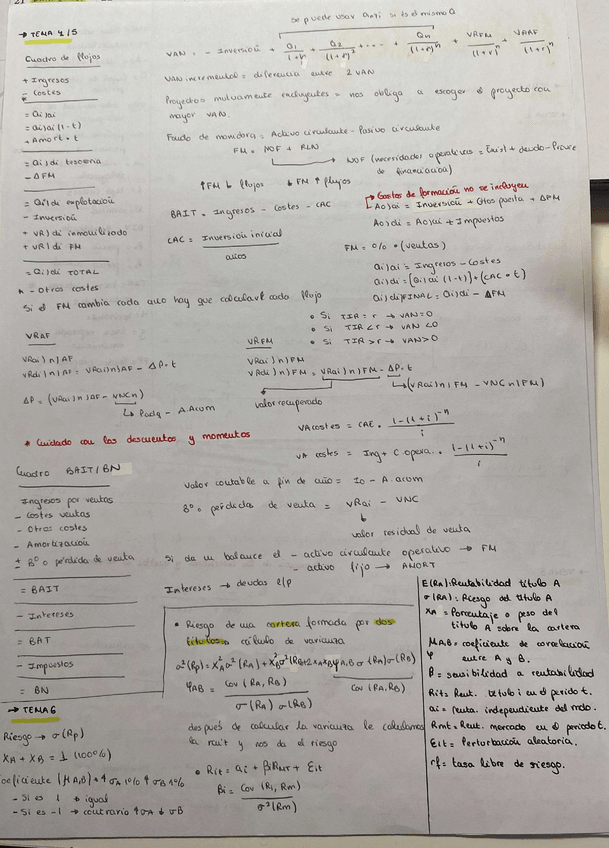 → TEMA 4/5
se puede usar anti si es el mismo Q
VAN = - Inversión + Q1/(1+r) + Q2/(1+r)² + .... + Qn/(1+r)ⁿ + VRFM/(1+r)ⁿ + VRAF/(1+r)ⁿ
VAN incremental = diferencia entre 2 VAN
Proyectos mutuamente excluyentes = nos obliga a escoger el proyecto con
mayor VAN.
Fondo de maniobra = Activo circulante - Pasivo circulante
FM = NOF + RLN
→ NOF (necesidades operativas = Exist + deudo - Provee
de financiación)
↑FM ↓ flujos ↓ FM ↑ flujos
BAIT = Ingresos - Costes - CAC
CAC = Inversión inicial / años
→ Gastos de formación no se incluyen
Ao)ai = Inversión + Gtos puesta + ΔFM
Ao)di = Ao)ai + Impuestos
FM = % * (ventas)
Qi)ai = Ingresos - Costes
Qi)di = [Qi)ai (1-t)] + (CAC * t)
Qi)di)FINAL = Qi)di - ΔFM
Cuadro de flujos
+ Ingresos
- Costes
= Qi)ai
= Qi)ai (1-t)
+ Amort * t
= Qi)di tesorería
- ΔFM
= Qi)di explotación
- Inversión
+ VR)di inmovilizado
+ VR)di FM
= Qi)di TOTAL
* - Otros costes
Si el FM cambia cada año hay que calcularlo cada flujo
• Si TIR = r → VAN = 0
• Si TIR < r → VAN < 0
• Si TIR > r → VAN > 0
VRAF
VRai)n)AF
VRdi)n)AF = VRai)n)AF - ΔP·t
ΔP = (VRai)n)AF - VNCn)
↳ Padq - A.Acum
VRFM
VRai)n)FM
VRdi)n)FM = VRai)n)FM - ΔP·t
valor recuperado
↳ (VRai)n)FM - VNCn)FM)
VAcostes = CAE * (1-(1+i)⁻ⁿ)/i
VA costes = Ing + C.opera. * (1-(1+i)⁻ⁿ)/i
* Cuidado con los descuentos y momentos
Cuadro BAIT/BN
Ingresos por ventas
- Costes ventas
- Otros costes
- Amortización
± Bº o pérdida de venta
= BAIT
- Intereses
= BAT
- Impuestos
= BN
Valor contable a fin de año = Io - A.acum
Bº o pérdida de venta = VRai - VNC
valor residual de venta
Si da un balance el - activo circulante operativo → FM
- activo fijo → AMORT
Intereses → deudas l/p
→ TEMA 6
Riesgo → σ(Rp)
XA + XB = 1 (100%)
- Si es 1 → igual
- Si es -1 → contrario ↑σA ↓ σB
• Riesgo de una cartera formada por dos
títulos → cálculo de varianza
σ²(Rp) = X²A σ²(RA) + X²B σ²(RB) + 2XA XB φA,B σ(RA) σ(RB)
φAB = Cov (RA, RB) / σ(RA) σ(RB)
Cov (RA, RB)
después de calcular la varianza le calculamos
la raíz y nos da el riesgo
• Rit = ai + βi RMT + Eit
βi = Cov (Ri, Rm) / σ²(Rm)
E(RA): Rentabilidad título A
σ(RA): Riesgo del título A
XA = Porcentaje o peso del
título A sobre la cartera
μA,B = coeficiente de correlación
φ entre A y B.
β = sensibilidad a rentabilidad
Rit = Rent. título i en el periodo t.
ai = renta. independiente del mdo.
Rmt = Rent. mercado en el periodo t.
Eit = Perturbación aleatoria.
rf = tasa libre de riesgo.